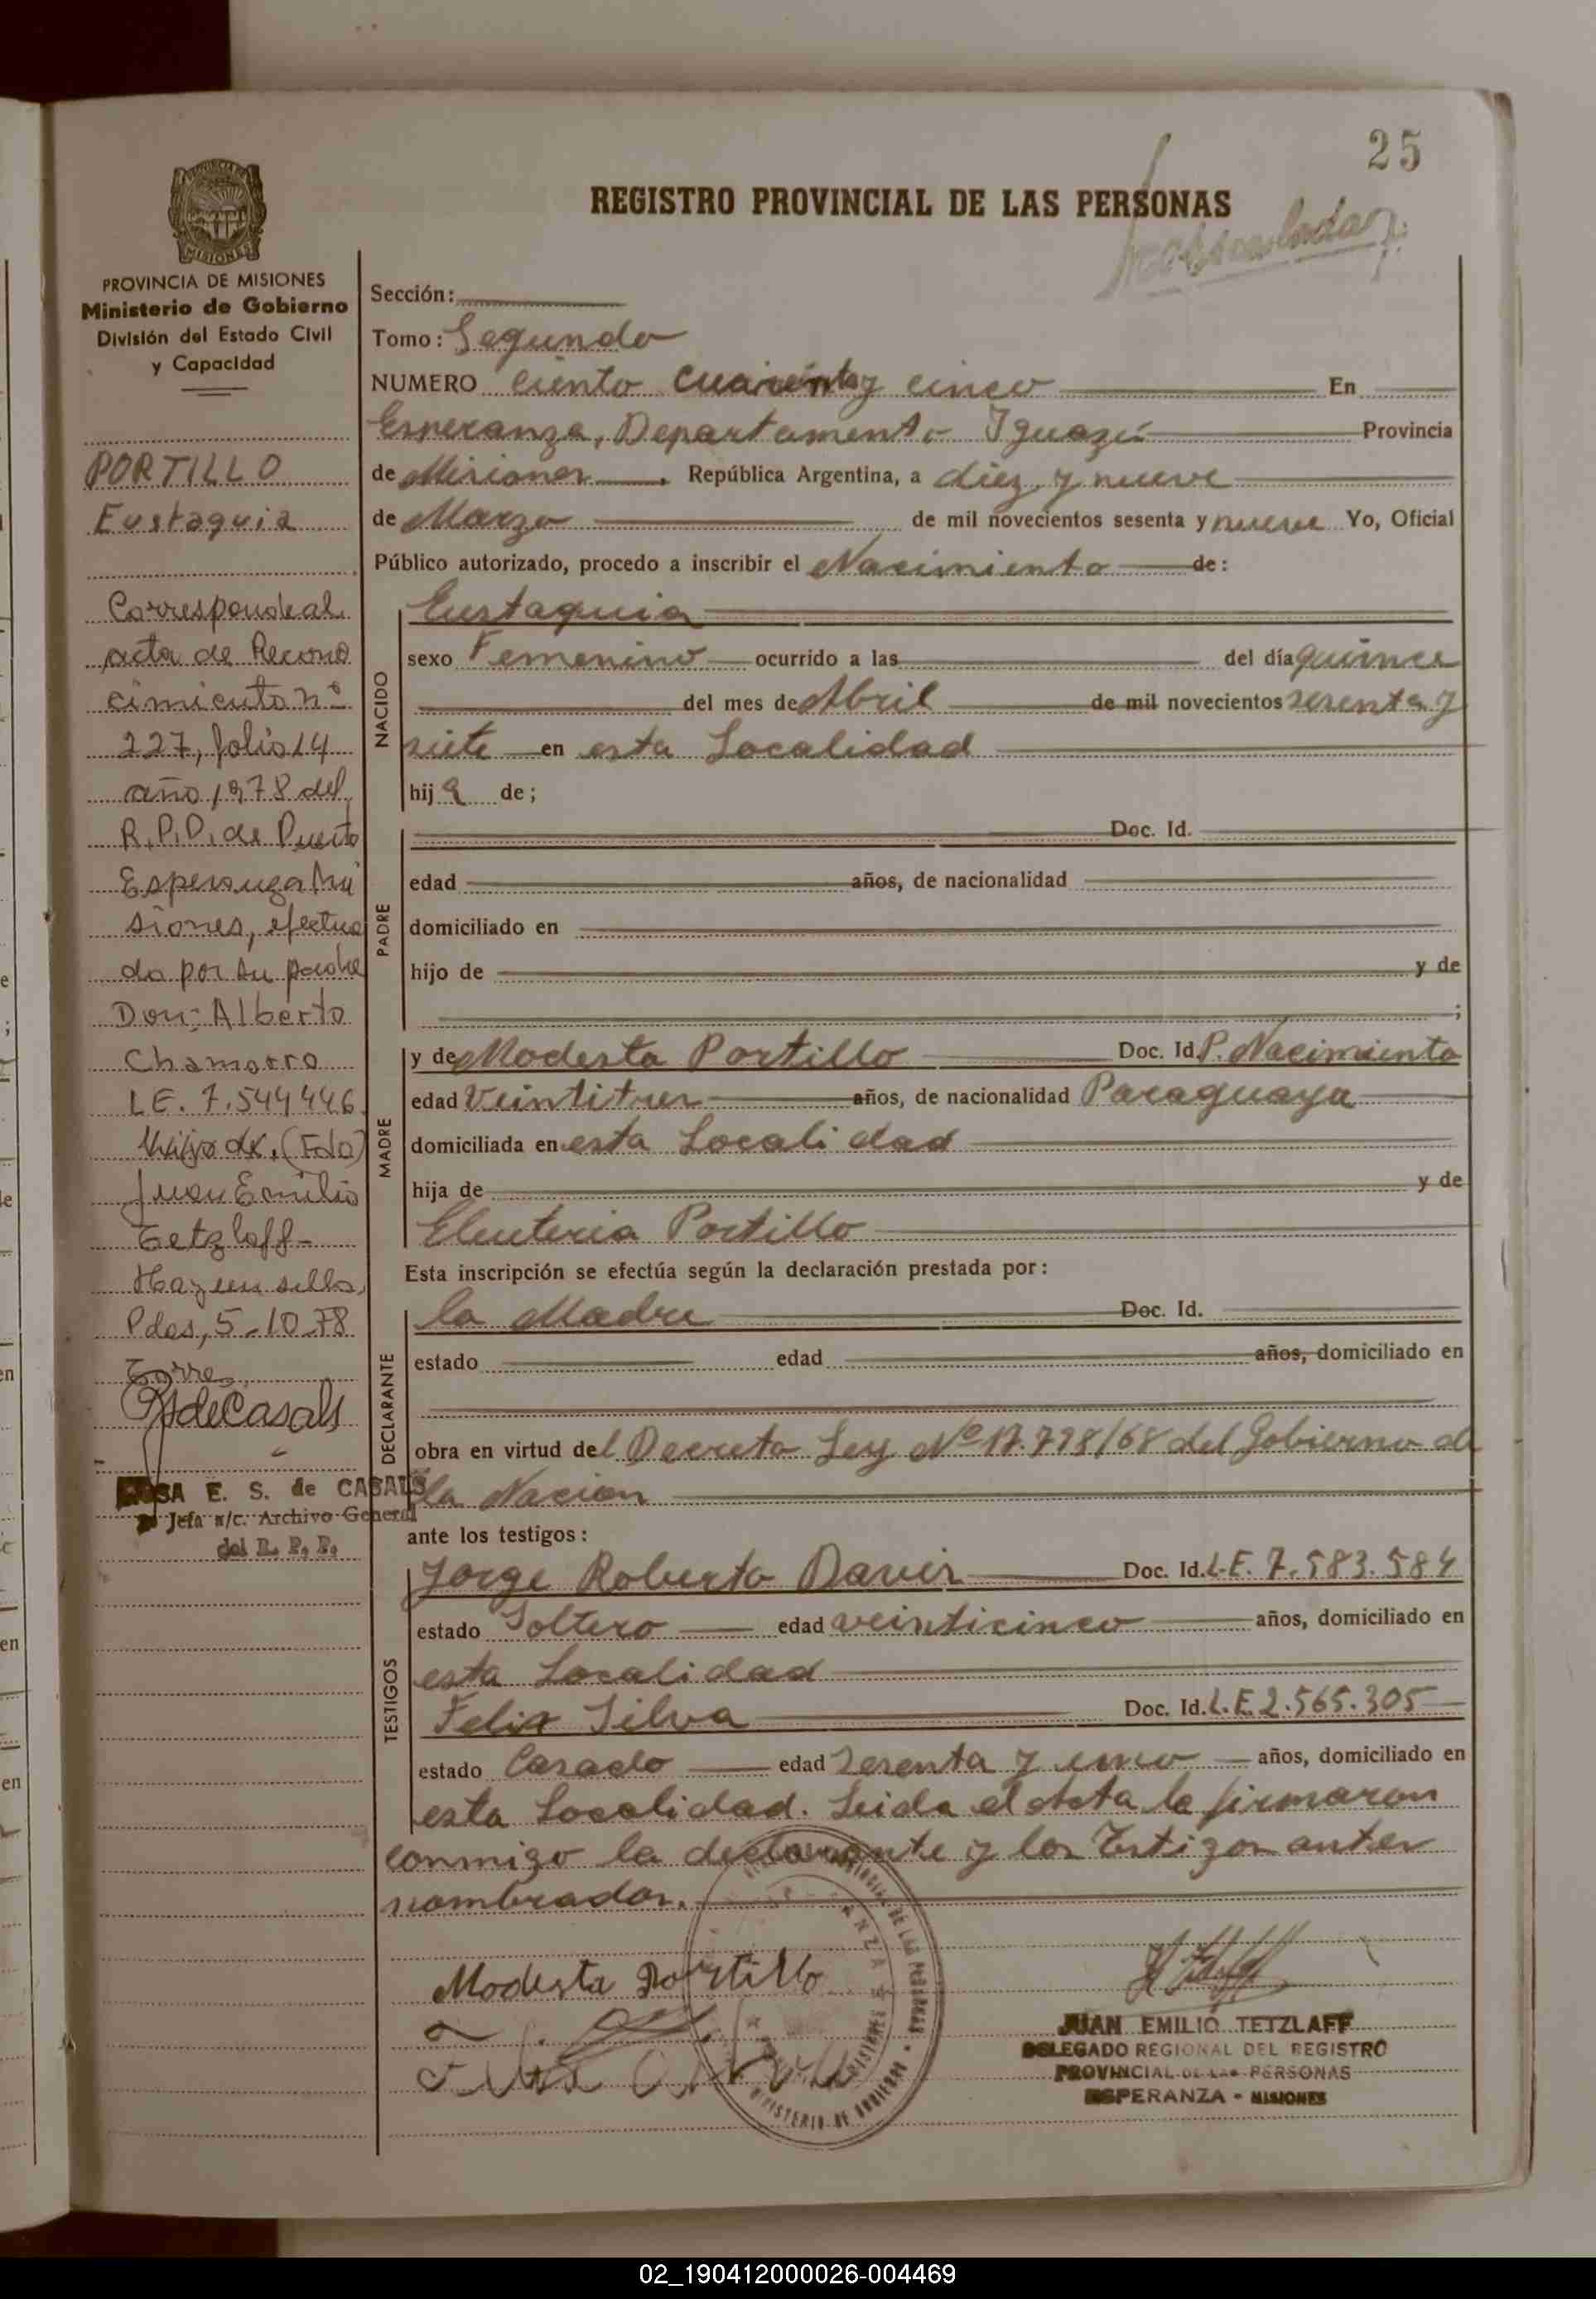 25
REGISTRO PROVINCIAL DE LAS PERSONAS
PROVINCIA DE MISIONES
Ministerio de Gobierno
División del Estado Civil
y Capacidad
PORTILLO
Eustaquia
Corresponde al
acta de Recono
cimiento nº
227, folio 14
año 1978 del
R.P.P. de Puerto
Esperanza Mi
siones, efectua
do por su padre
Don: Alberto
Chamorro
LE. 7.544446
(Fdo)
Juan Emilio
Tetzlaff-
Hay un sello,
Pdas, 5-10-78
Torres
RSdeCasals
E. S. de CASALS
Jefa a/c. Archivo General
del R. P. P.
Sección:
Tomo: Segundo
NUMERO ciento cuarenta y cinco En
Esperanza, Departamento Iguazú Provincia
de Misiones. República Argentina, a diez y nueve
de Marzo de mil novecientos sesenta y nueve Yo, Oficial
Público autorizado, procedo a inscribir el Nacimiento de:
NACIDO
Eustaquia
sexo Femenino ocurrido a las del día quince
del mes de Abril de mil novecientos sesenta y
siete en esta Localidad
hija de;
PADRE
Doc. Id.
edad años, de nacionalidad
domiciliado en
hijo de y de
;
MADRE
y de Modesta Portillo Doc. Id. P. Nacimiento
edad Veintitres años, de nacionalidad Paraguaya
domiciliada en esta Localidad
hija de y de
Eleuteria Portillo
Esta inscripción se efectúa según la declaración prestada por:
DECLARANTE
la Madre Doc. Id.
estado edad años, domiciliado en
obra en virtud del Decreto Ley Nº 17.798/68 del Gobierno de
la Nacion
ante los testigos:
TESTIGOS
Jorge Roberto Davis Doc. Id. L.E. 7.583.584
estado Soltero edad veinticinco años, domiciliado en
esta Localidad
Felix Silva Doc. Id. L.E. 2.565.305
estado Casado edad Sesenta y uno años, domiciliado en
esta Localidad. Leida el Acta la firmaron
conmigo la declarante y los Testigos antes
nombrados.
Modesta Portillo
JUAN EMILIO TETZLAFF
DELEGADO REGIONAL DEL REGISTRO
PROVINCIAL DE LAS PERSONAS
ESPERANZA - MISIONES
02_190412000026-004469